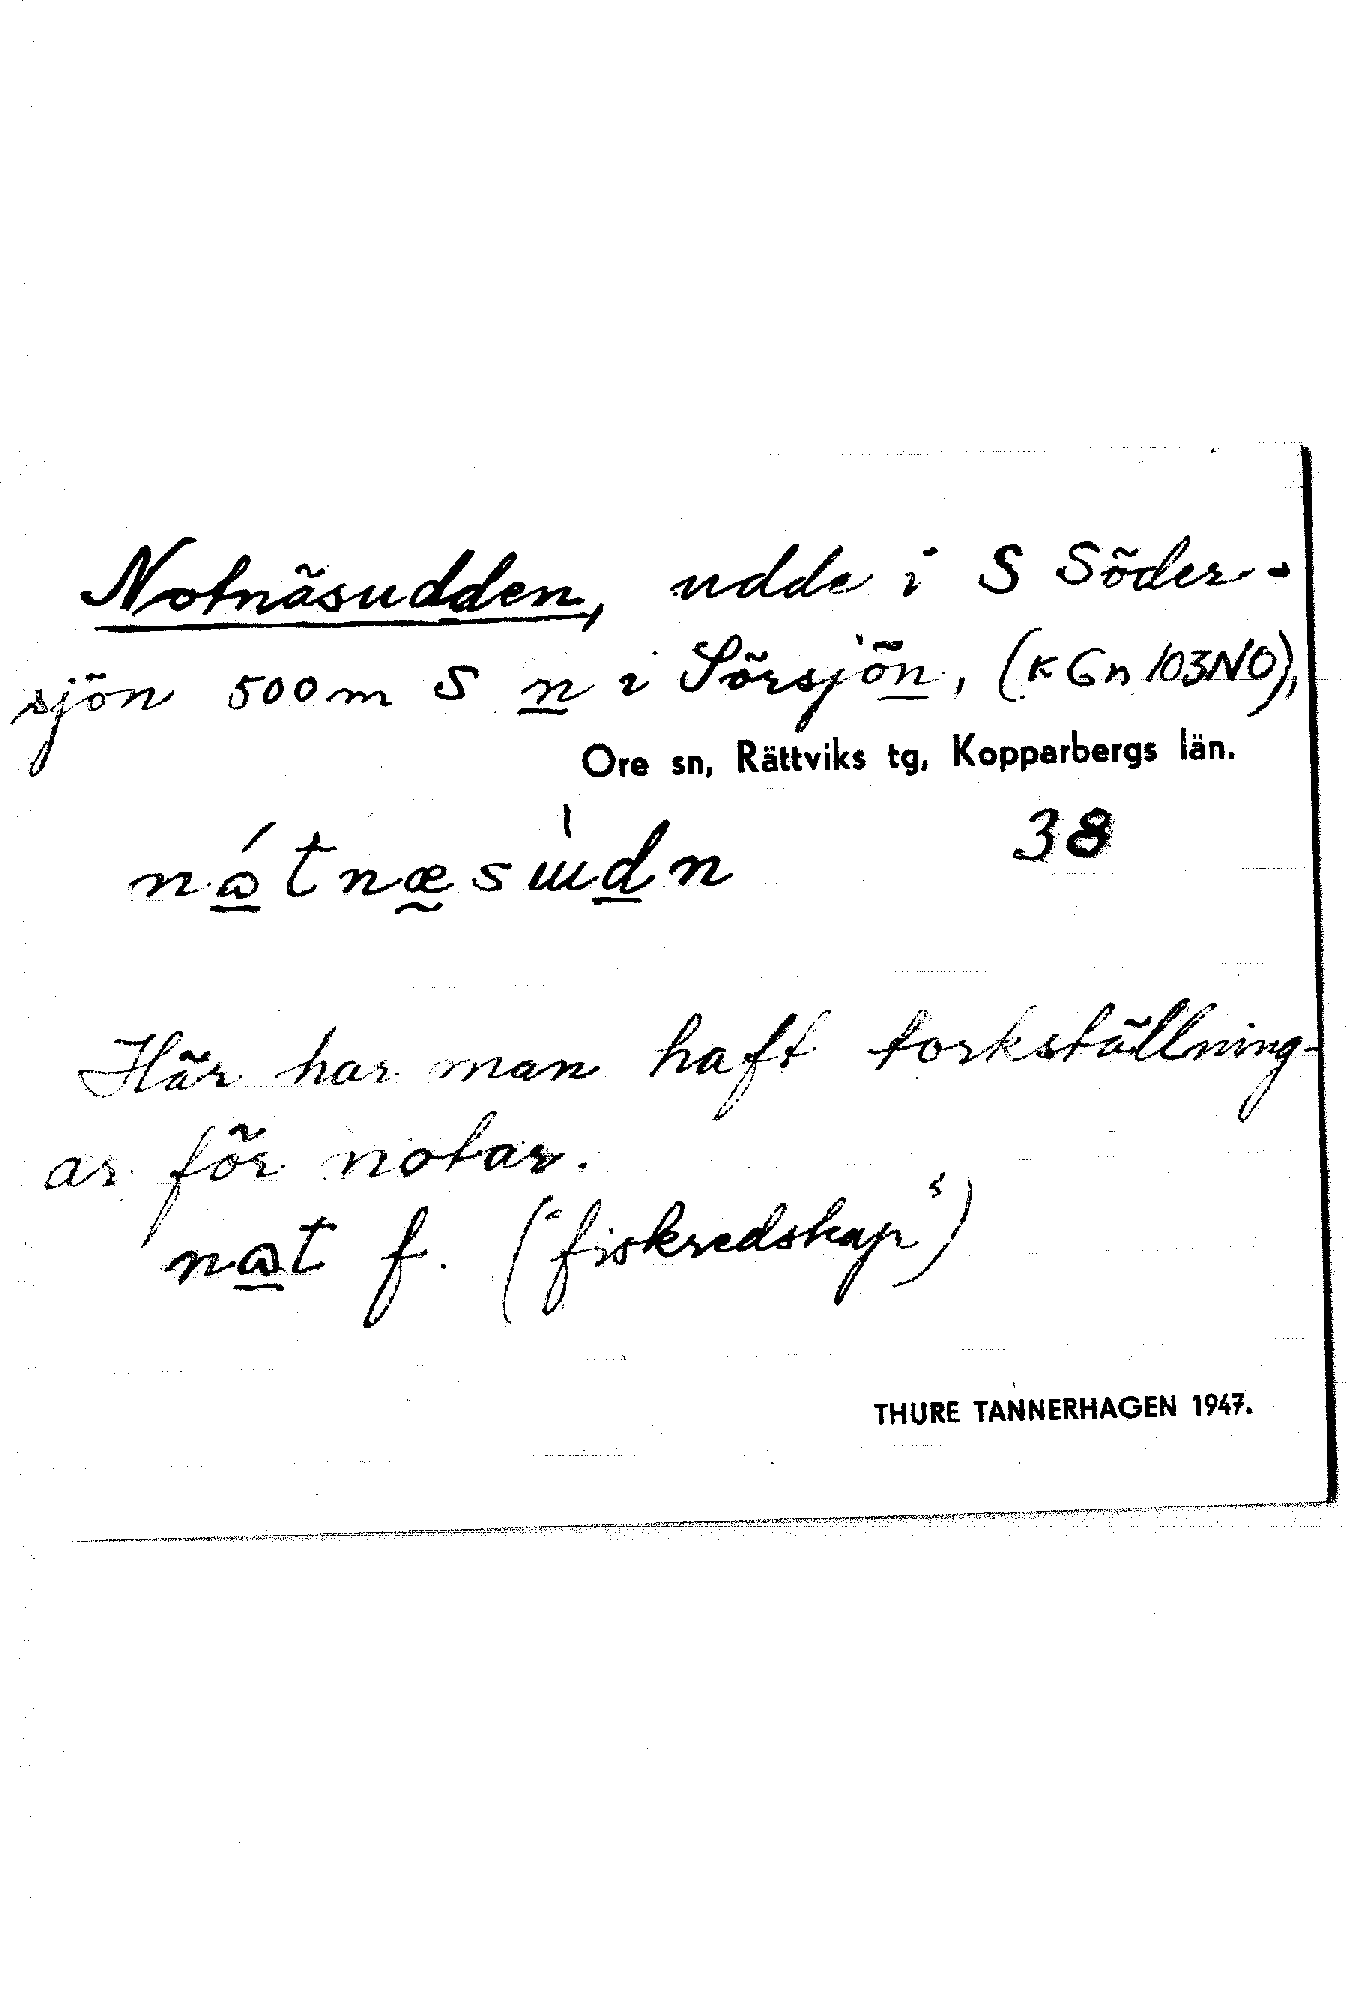 Notnäsudden, udde i S Söder-
sjön 500m S n i Sörsjön, (K Gn 103NO),
Ore sn, Rättviks tg, Kopparbergs län.
38
Här har man haft torkställning-
ar för notar.
f. ("fiskredskap")
THURE TANNERHAGEN 1947.